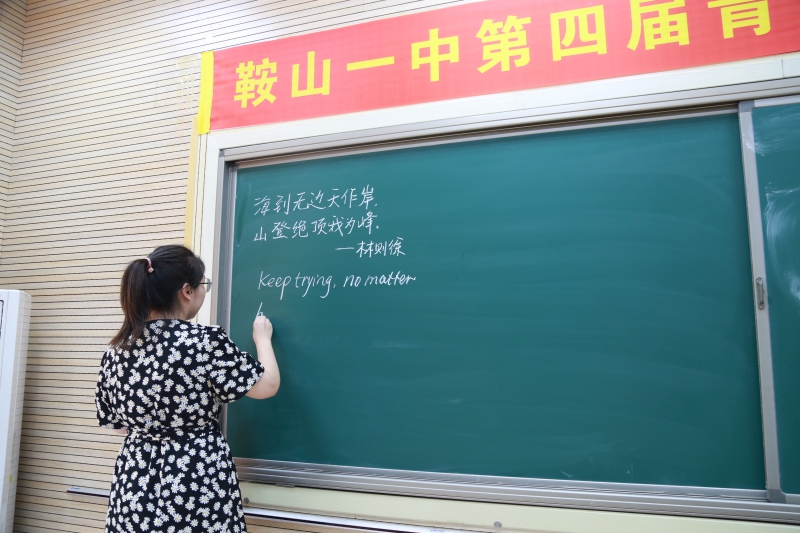 鞍山一中第四届青
海到无边天作岸，
山登绝顶我为峰。
—林则徐
Keep trying, no matter
h